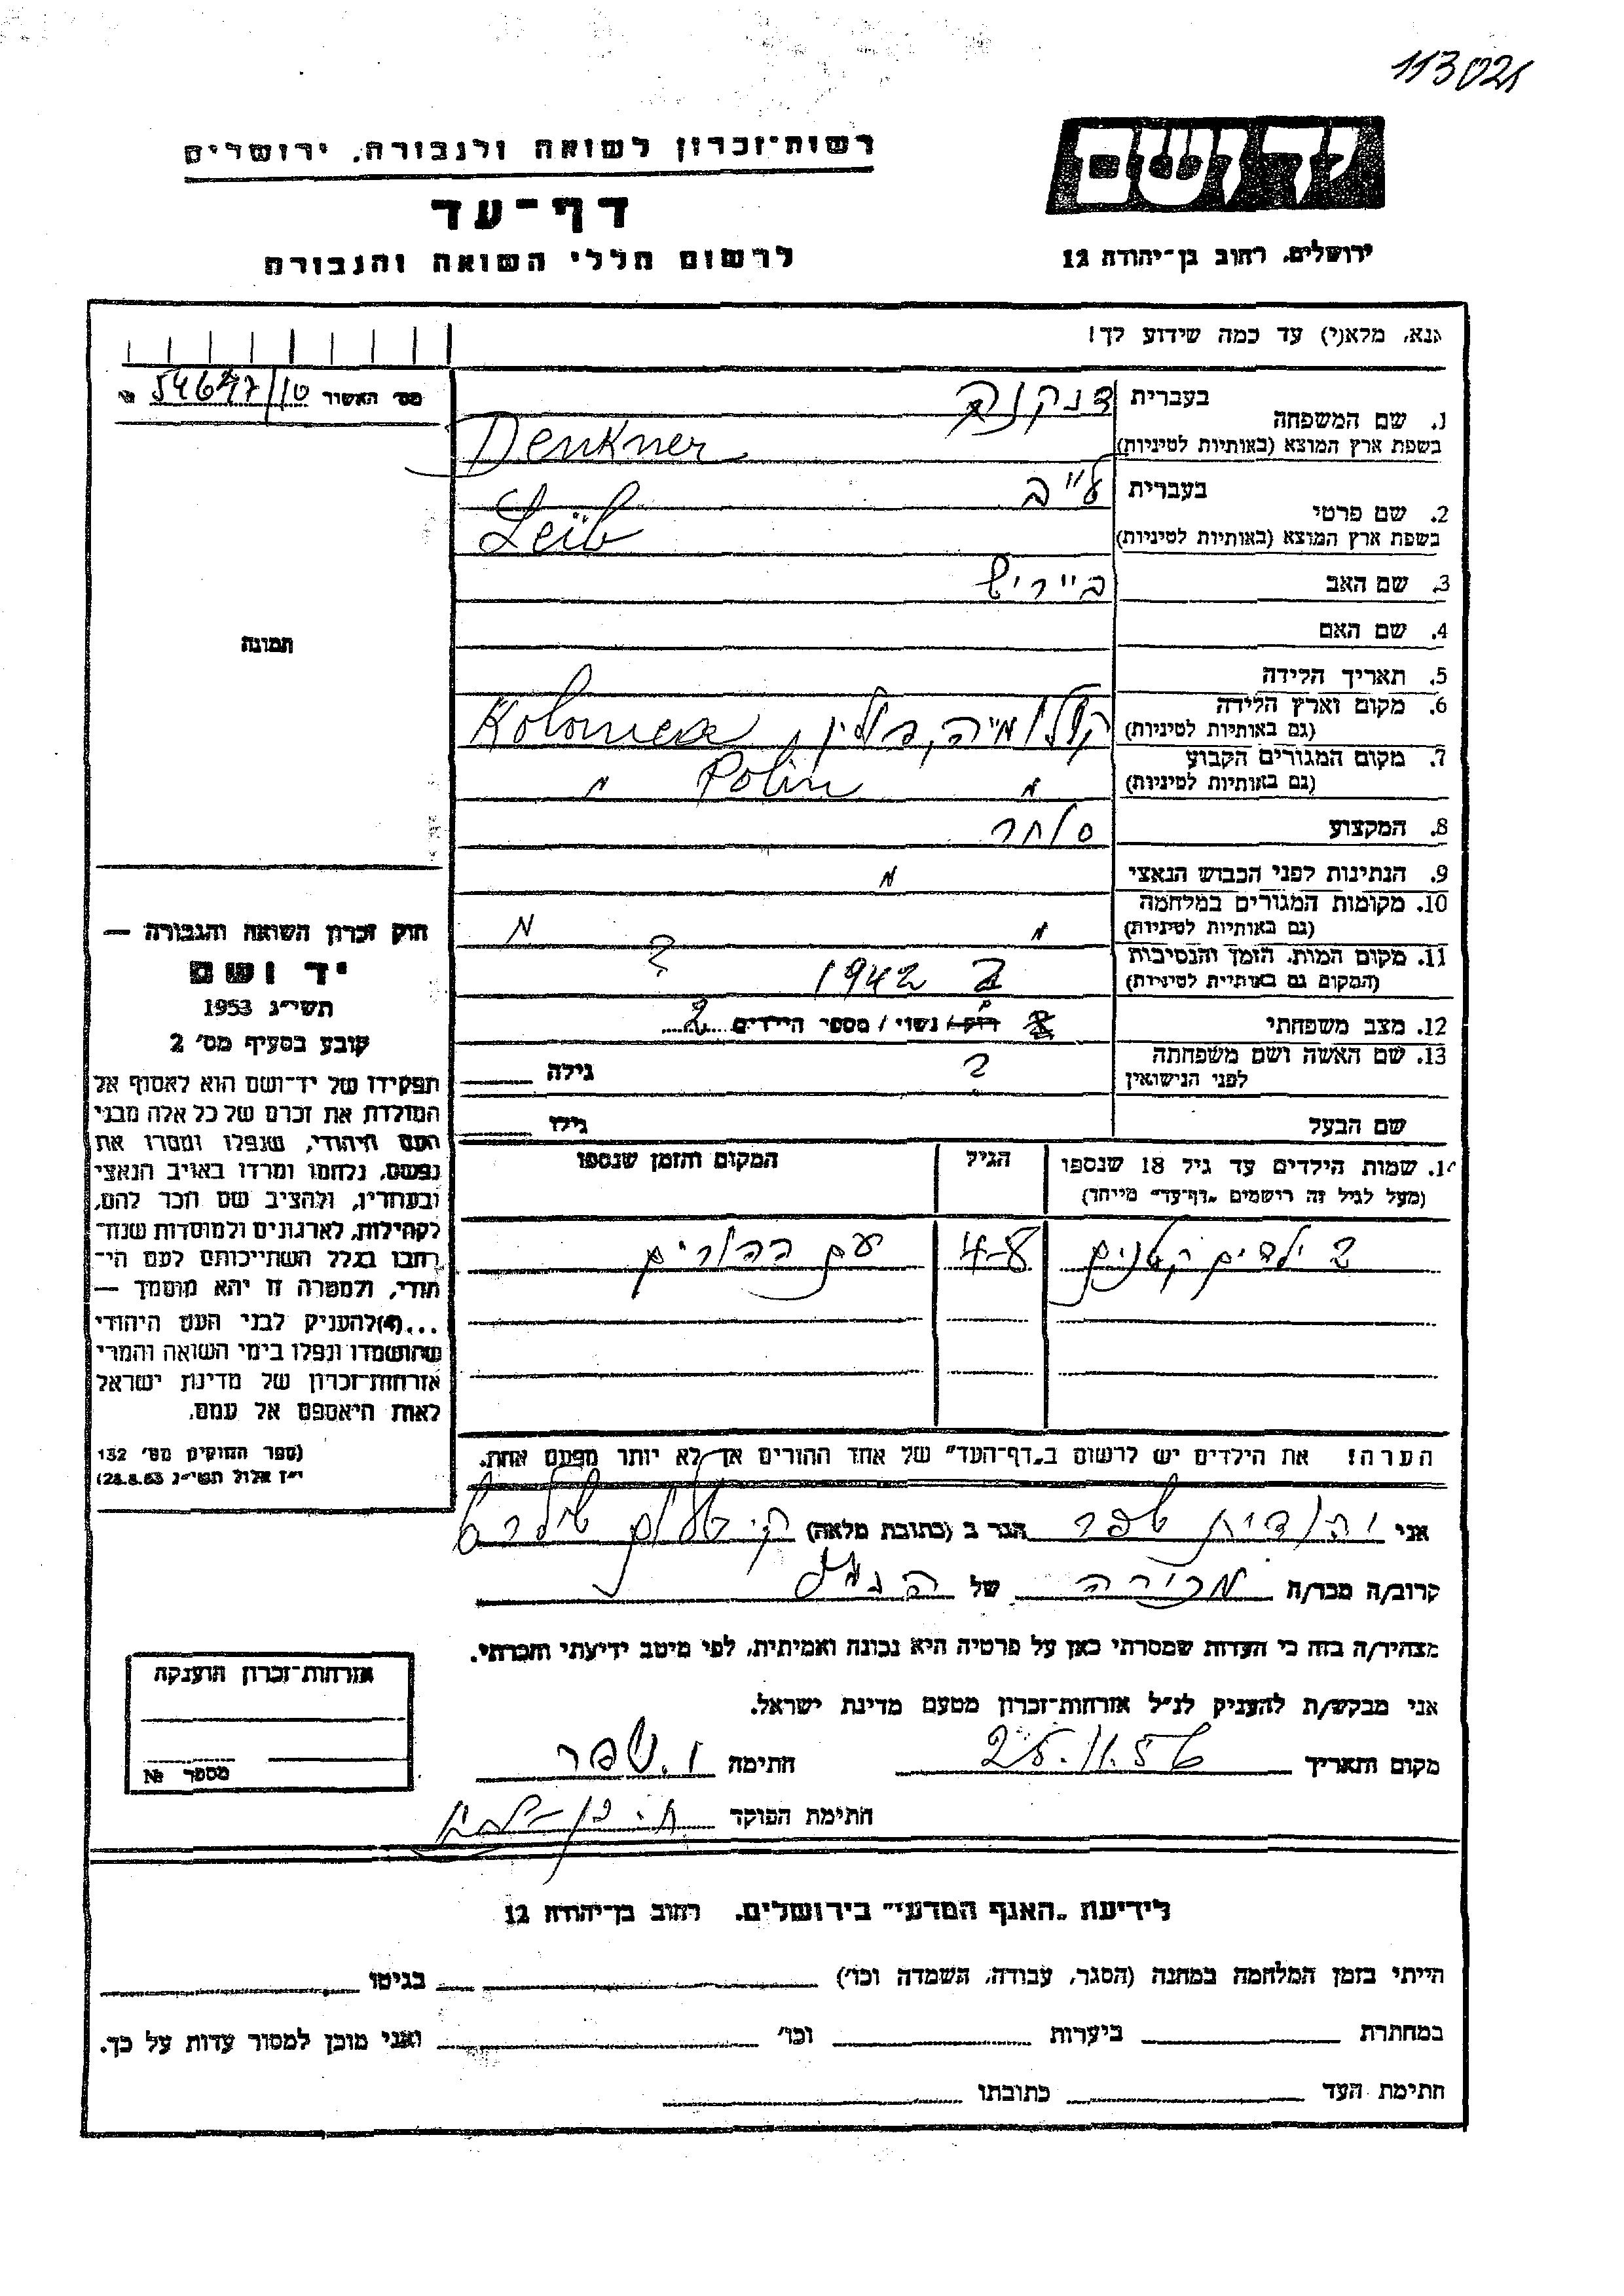 113021
רשות־זכרון לשואה ולגבורה, ירושלים
יד ושם
דף־עד
לרשום חללי השואה והגבורה
ירושלים, רחוב בן־יהודה 12
נא, מלא(י) עד כמה שידוע לך!
מס' האשור №
1. שם המשפחה
בעברית דנקנר
בשפת ארץ המוצא (באותיות לטיניות) Denkner
2. שם פרטי
בעברית לייב
בשפת ארץ המוצא (באותיות לטיניות) Leib
3. שם האב בייריש
4. שם האם
תמונה
5. תאריך הלידה
6. מקום וארץ הלידה
(גם באותיות לטיניות) קולומיה, פולין Kolomea
7. מקום המגורים הקבוע
(גם באותיות לטיניות) " Polin "
8. המקצוע סוחר
9. הנתינות לפני הכבוש הנאצי "
10. מקומות המגורים במלחמה
(גם באותיות לטיניות) " "
11. מקום המות, הזמן והנסיבות
(המקום גם באותיות לטיניות) ? 1942 ?
12. מצב משפחתי רוק / נשוי / מספר הילדים 2
13. שם האשה ושם משפחתה
לפני הנישואין ? גילה
שם הבעל גילו
14. שמות הילדים עד גיל 18 שנספו הגיל המקום והזמן שנספו
(מעל לגיל זה רושמים "דף־עד" מייחד)
2 ילדים קטנים 4-8 עם ההורים
הערה! את הילדים יש לרשום ב"דף־העד" של אחד ההורים אך לא יותר מפעם אחת.
חוק זכרון השואה והגבורה —
יד ושם
תשי"ג 1953
קובע בסעיף מס' 2
תפקידו של יד־ושם הוא לאסוף אל
המולדת את זכרם של כל אלה מבני
העם היהודי, שנפלו ומסרו את
נפשם, נלחמו ומרדו באויב הנאצי
ובעוזריו, ולהציב שם וזכר להם,
לקהילות, לארגונים ולמוסדות שנח־
רבו בגלל השתייכותם לעם הי־
הודי, ולמטרה זו יהא מוסמך —
...(4) להעניק לבני העם היהודי
שהושמדו ונפלו בימי השואה והמרי
אזרחות־זכרון של מדינת ישראל
לאות היאספם אל עמם.
(ספר החוקים מס' 132
י"ז אלול תשי"ג 28.8.53)
אני יהודית שפר הגר ב (כתובת מלאה)
קרוב/ה מכר/ה מכירה של הנ"ל
מצהיר/ה בזה כי העדות שמסרתי כאן על פרטיה היא נכונה ואמיתית, לפי מיטב ידיעתי והכרתי.
אני מבקש/ת להעניק לנ"ל אזרחות־זכרון מטעם מדינת ישראל.
מקום ותאריך 25.11.56 חתימה י. שפר
חתימת הפוקד
אזרחות־זכרון הוענקה
מספר №
לידיעת "האגף המדעי" בירושלים, רחוב בן־יהודה 12
הייתי בזמן המלחמה במחנה (הסגר, עבודה, השמדה וכו') בגיטו
במחתרת ביערות וכו' ואני מוכן למסור עדות על כך.
חתימת העד כתובתו